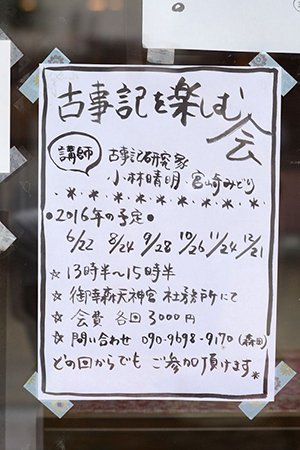 古事記を楽しむ会
講師 古事記研究家
小林晴明・宮崎みどり
●2016年の予定●
6/22 8/24 9/28 10/26 11/24 12/21
☆ 13時半～15時半
☆ 御幸森天神宮 社務所にて
☆ 会費 各回 3000円
☆ 問い合わせ 090-9698-9170 (森田)
どの回からでも ご参加頂けます